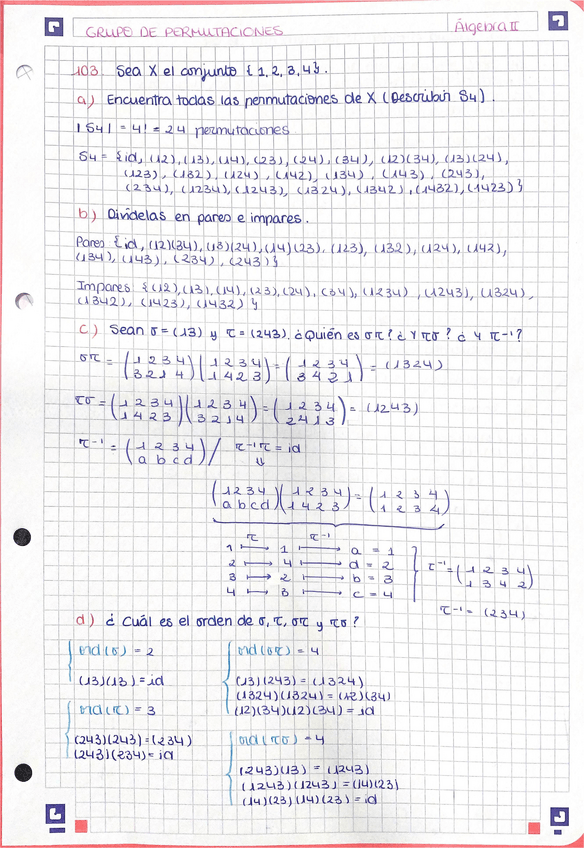 GRUPO DE PERMUTACIONES
Álgebra II
103. Sea X el conjunto {1,2,3,4}.
a) Encuentra todas las permutaciones de X (Describir S4).
|S4| = 4! = 24 permutaciones
S4 = {id, (12), (13), (14), (23), (24), (34), (12)(34), (13)(24),
(123), (132), (124), (142), (134), (143), (243),
(234), (1234), (1243), (1324), (1342), (1432), (1423)}
b) Divídelas en pares e impares.
Pares {id, (12)(34), (13)(24), (14)(23), (123), (132), (124), (142),
(134), (143), (234), (243)}
Impares {(12), (13), (14), (23), (24), (34), (1234), (1243), (1324),
(1342), (1423), (1432)}
c) Sean σ = (13) y τ = (243). ¿Quién es στ? ¿Y τσ? ¿Y τ⁻¹?
στ = (1 2 3 4 / 3 2 1 4)(1 2 3 4 / 1 4 2 3) = (1 2 3 4 / 3 4 2 1) = (1324)
τσ = (1 2 3 4 / 1 4 2 3)(1 2 3 4 / 3 2 1 4) = (1 2 3 4 / 2 4 1 3) = (1243)
τ⁻¹ = (1 2 3 4 / a b c d) / τ⁻¹τ = id
⇓
(1 2 3 4 / a b c d)(1 2 3 4 / 1 4 2 3) = (1 2 3 4 / 1 2 3 4)
τ τ⁻¹
1 ↦ 1 ↦ a = 1
2 ↦ 4 ↦ d = 2
3 ↦ 2 ↦ b = 3
4 ↦ 3 ↦ c = 4
τ⁻¹ = (1 2 3 4 / 1 3 4 2)
τ⁻¹ = (234)
d) ¿Cuál es el orden de σ, τ, στ y τσ?
ord(σ) = 2
(13)(13) = id
ord(τ) = 3
(243)(243) = (234)
(243)(234) = id
ord(στ) = 4
(13)(243) = (1324)
(1324)(1324) = (12)(34)
(12)(34)(12)(34) = id
ord(τσ) = 4
(243)(13) = (1243)
(1243)(1243) = (14)(23)
(14)(23)(14)(23) = id